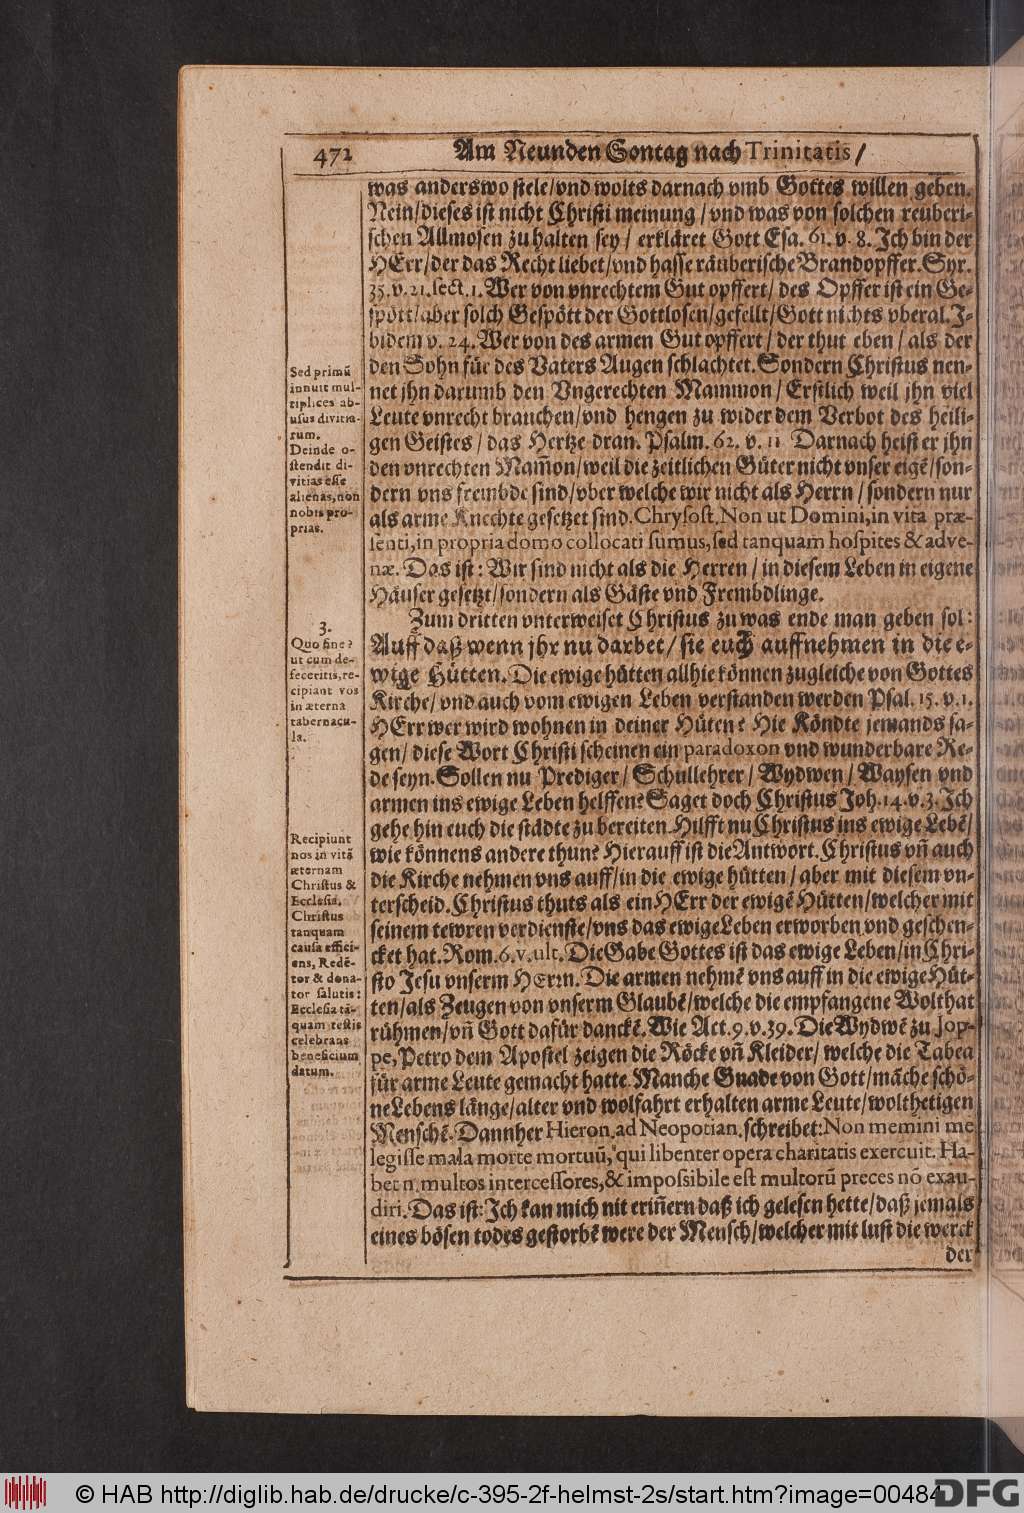 472
Am Neunden Sontag nach Trinitatis /
was anderswo stele/vnd wolts darnach vmb Gottes willen geben.
Nein/dieses ist nicht Christi meinung /vnd was von solchen reuberi-
schen Allmosen zu halten sey / erkläret Gott Esa. 61. v. 8. Ich bin der
HErr/der das Recht liebet/vnd hasse räuberische Brandopffer. Syr.
35. v. 21. sect. 1. Wer von vnrechtem Gut opffert/ des Opffer ist ein Ge-
spött/aber solch Gespött der Gottlosen/gefellt/Gott nichts vberal. I-
bidem v. 24. Wer von des armen Gut opffert / der thut eben / als der
den Sohn für des Vaters Augen schlachtet. Sondern Christus nen-
net jhn darumb den Vngerechten Mammon / Erstlich weil jhn viel
Leute vnrecht brauchen/vnd hengen zu wider dem Verbot des heili-
gen Geistes / das Hertze dran. Psalm. 62. v. 11 Darnach heist er jhn
den vnrechten Mam̃on/weil die zeitlichen Güter nicht vnser eigẽ/son-
dern vns frembde sind/vber welche wir nicht als Herrn / sondern nur
als arme Knechte gesetzet sind. Chrysost. Non ut Domini, in vita præ-
senti, in propria domo collocati sumus, sed tanquam hospites & adve-
næ. Das ist: Wir sind nicht als die Herren / in diesem Leben in eigene
Häuser gesetzt/sondern als Gäste vnd Frembdlinge.
Zum dritten vnterweiset Christus zu was ende man geben sol:
Auff daß wenn jhr nu darbet/ sie euch auffnehmen in die e-
wige Hütten. Die ewige hütten allhie können zugleiche von Gottes
Kirche/ vnd auch vom ewigen Leben verstanden werden Psal. 15. v. 1.
HErr wer wird wohnen in deiner Hüten? Hie Köndte jemands sa-
gen/ diese Wort Christi scheinen ein paradoxon vnd wunderbare Re-
de seyn. Sollen nu Prediger/ Schullehrer / Wydwen / Waysen vnd
armen ins ewige Leben helffen? Saget doch Christus Joh. 14. v. 3. Ich
gehe hin euch die städte zu bereiten. Hilfft nu Christus ins ewige Lebẽ/
wie könnens andere thun? Hierauff ist die Antwort. Christus vñ auch
die Kirche nehmen vns auff/in die ewige hütten / aber mit diesem vn-
terscheid. Christus thuts als ein HErr der ewigẽ Hütten/welcher mit
seinem tewren verdienste/vns das ewige Leben erworben vnd geschen-
cket hat. Rom. 6. v. ult. Die Gabe Gottes ist das ewige Leben/in Chri-
sto Jesu vnserm HErrn. Die armen nehmẽ vns auff in die ewige Hüt-
ten/als Zeugen von vnserm Glaubẽ/welche die empfangene Wolthat
rühmen/vñ Gott dafür danckẽ. Wie Act. 9. v. 39. Die Wydwẽ zu Jop-
pe, Petro dem Apostel zeigen die Röcke vñ Kleider/ welche die Tabea
für arme Leute gemacht hatte. Manche Gnade von Gott/mãche schö-
ne Lebens länge/alter vnd wolfahrt erhalten arme Leute/wolthetigen
Menschẽ. Dannher Hieron. ad Neopotian. schreibet: Non memini me
legisse mala morte mortuũ, qui libenter opera charitatis exercuit. Ha-
bet n. multos intercessores, & impossibile est multorũ preces nõ exau-
diri. Das ist: Ich kan mich nit eriñern daß ich gelesen hette/daß jemals
eines bösen todes gestorbẽ were der Mensch/welcher mit lust die werck
der
Sed primũ
innuit mul-
tiplices ab-
usus divitia-
rum.
Deinde o-
stendit di-
vitias esse
alienas, non
nobis pro-
prias.
3.
Quo fine?
ut cum de-
feceritis, re-
cipiant vos
in æterna
tabernacu-
la.
Recipiunt
nos in vitã
æternam
Christus &
Ecclesia.
Christus
tanquam
causa effici-
ens, Redẽ-
tor & dona-
tor salutis:
Ecclesia tã-
quam testis
celebrans
beneficium
datum.
© HAB http://diglib.hab.de/drucke/c-395-2f-helmst-2s/start.htm?image=00484
DFG